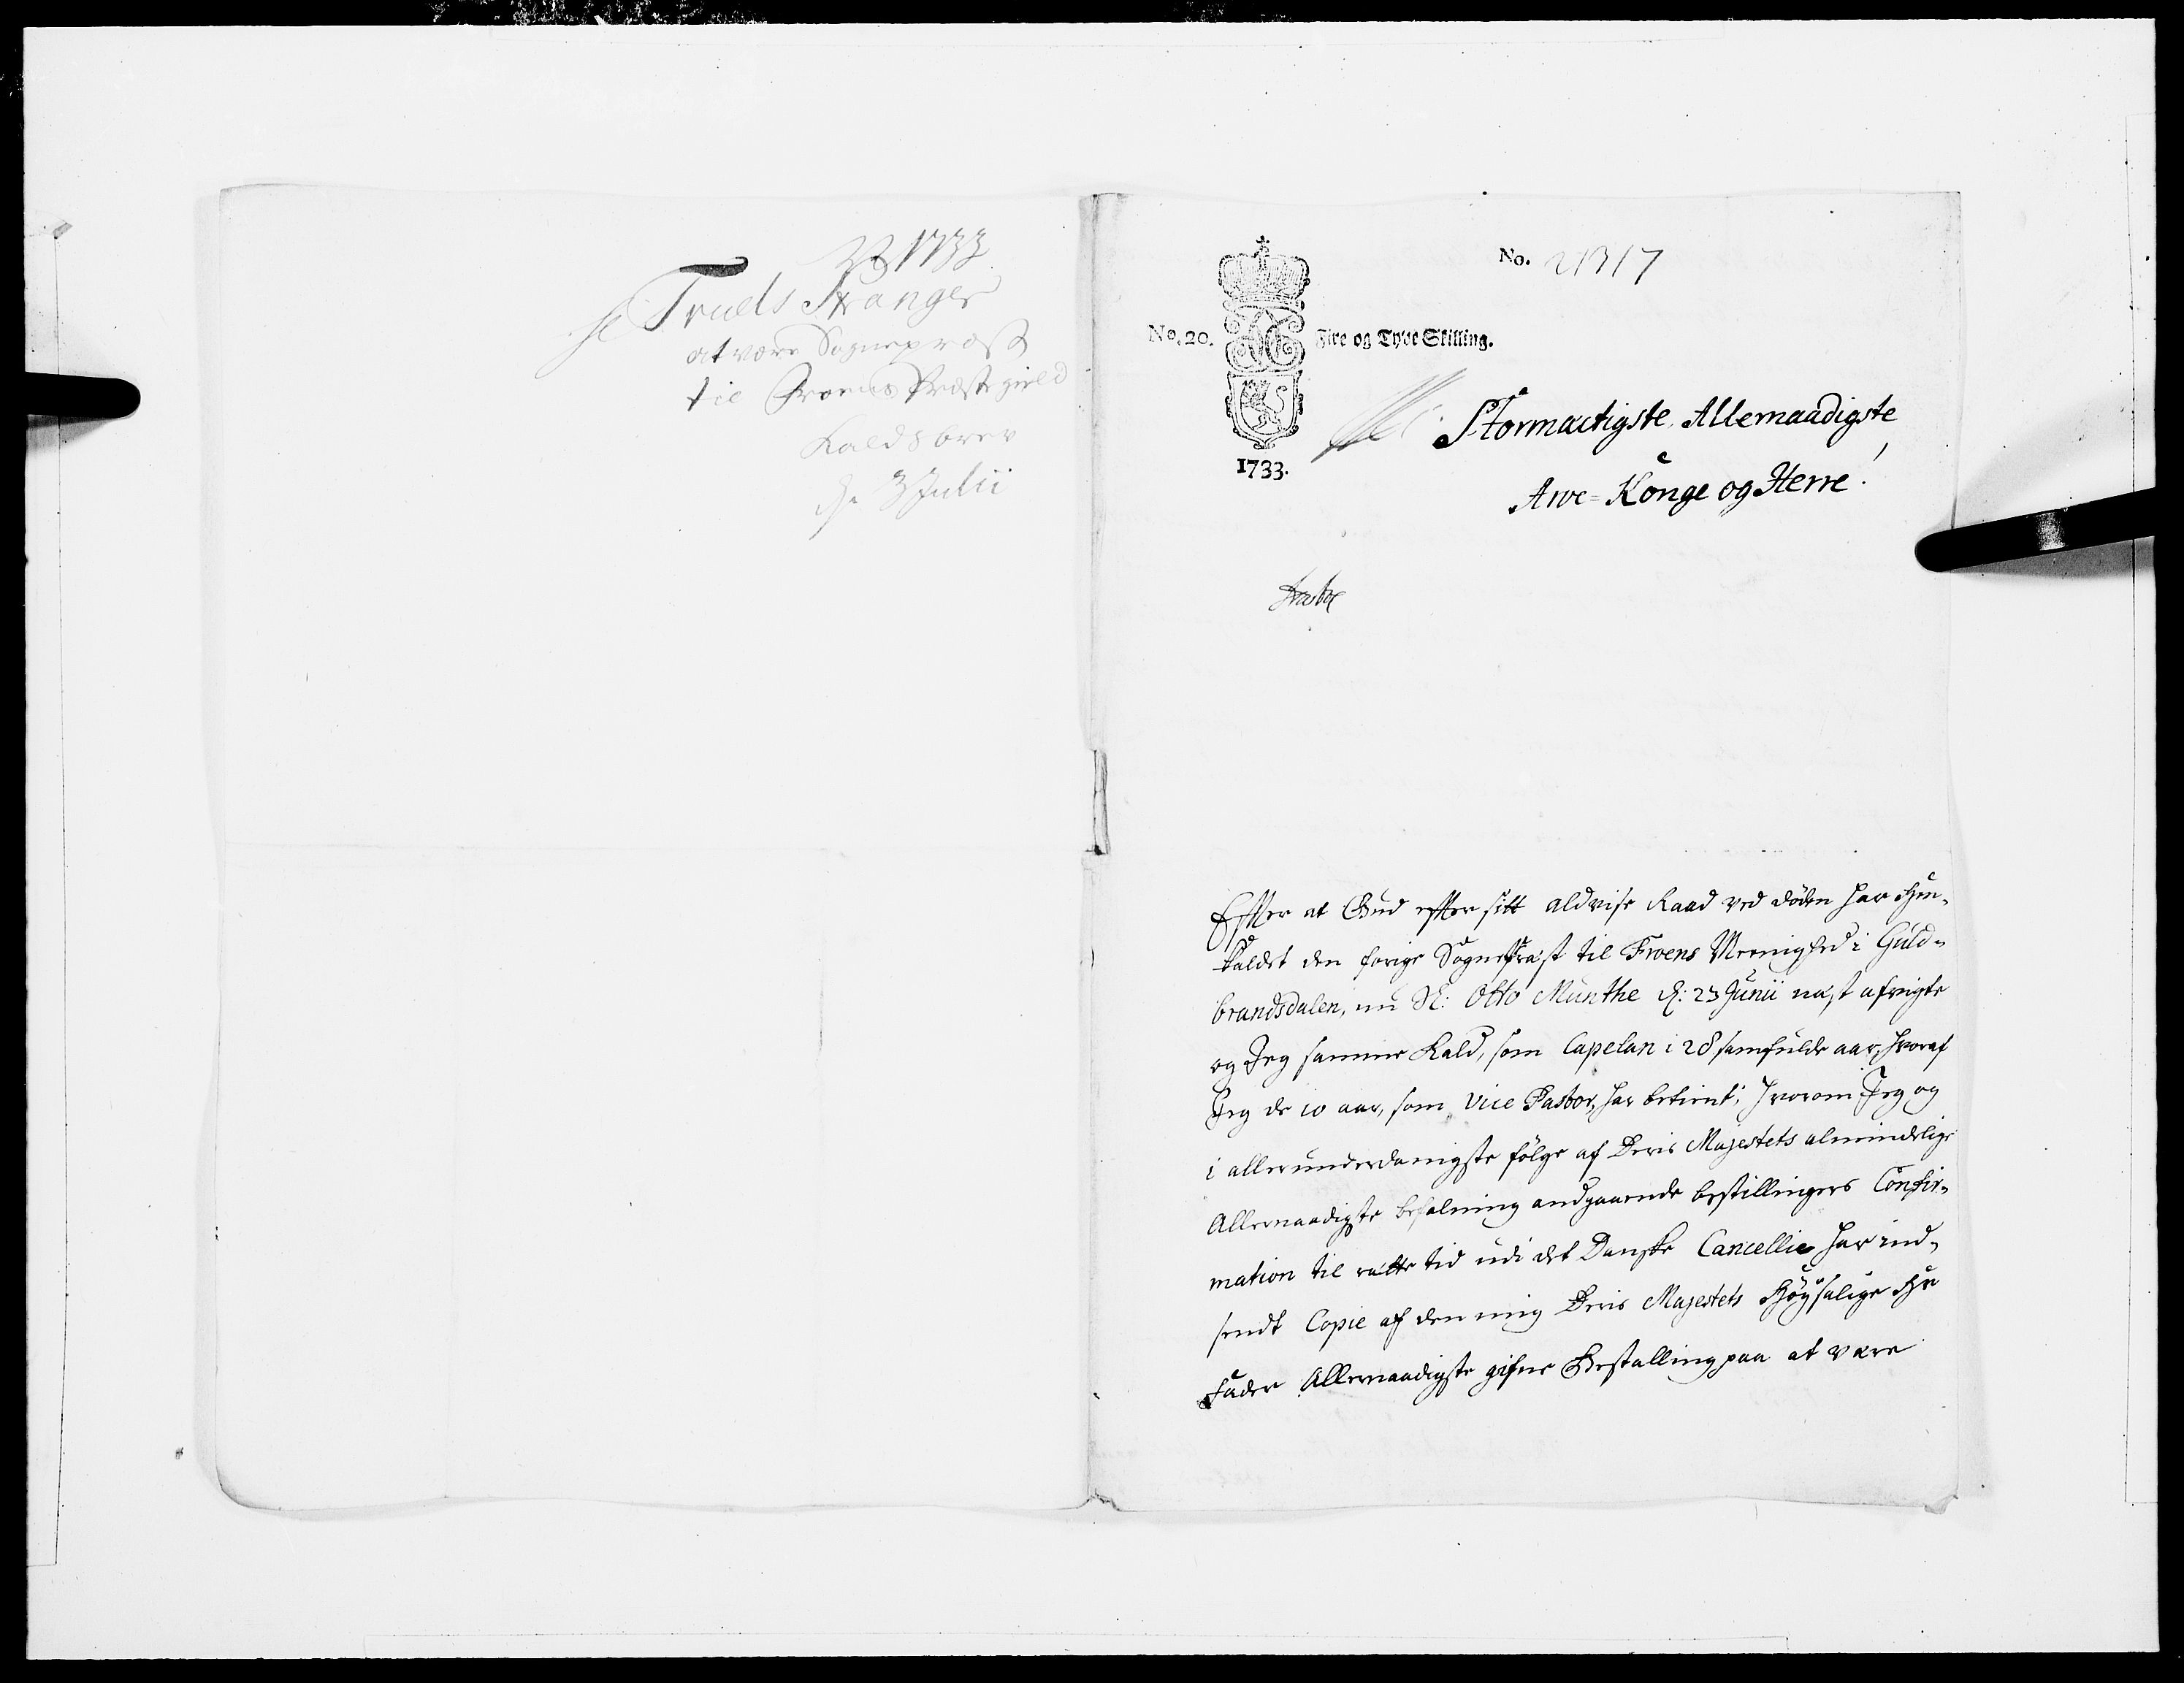 1733
Hr Truels Stranger
at være Sognepræst
til Froens Præstegield
Kaldsbrev
d: 3 Julii
No. 21317
No. 20. Fire og Tyve Skilling.
1733.
Stormactigste, Allernaadigste
Arve-Konge og Herre!
Efter at Gud efter sitt aldvise Raad ved døden har hen-
kaldet den forige Sognepræst til Froens Meenighed i Guld-
brandsdalen, nu Sl: Otto Munthe d: 23 Junii næst afvigte
og Jeg samme Kald, som Capelan i 28 samfulde aar, hvoraf
Jeg de 10 aar, som Vice Pastor, har betient; hvorom Jeg og
i allerunderdanigste følge af Deris Majestets almindelige
Allernaadigste befalning andgaaende bestillingers Confir-
mation til rætte tid udi det Danske Cancellie har ind-
sendt Copie af den mig Deris Majestets Høysalige Hr
Fader Allernaadigste gifne Bestalling paa at være